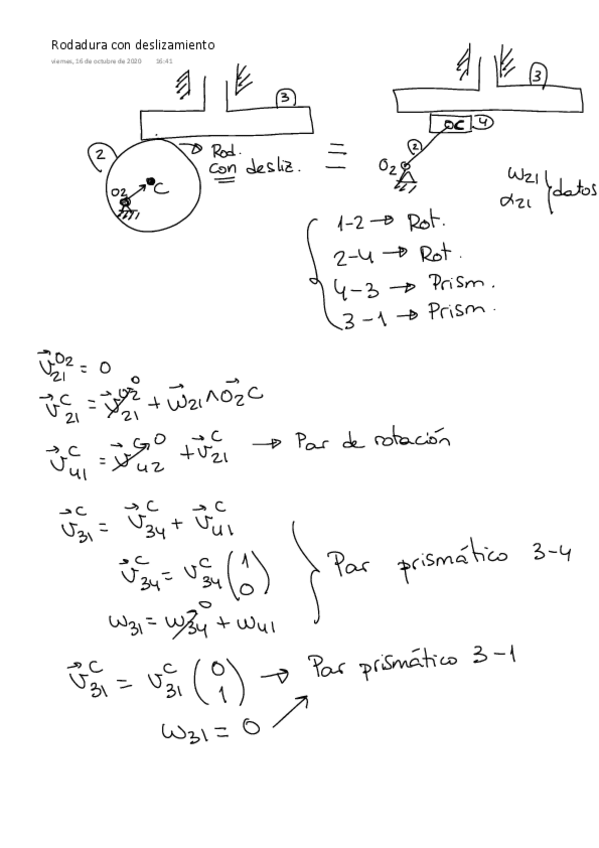 Rodadura con deslizamiento
viernes, 16 de octubre de 2020 16:41
3
2
O2
C
Rod.
con desliz.
=
3
OC 4
2
O2
ω21
α21 } datos
1-2 → Rot.
2-4 → Rot.
4-3 → Prism.
3-1 → Prism.
v⃗21^O2 = 0
v⃗21^C = v⃗21^O2 0 + ω⃗21 ∧ O2C⃗
v⃗41^C = v⃗42^C 0 + v⃗21^C → Par de rotación
v⃗31^C = v⃗34^C + v⃗41^C
v⃗34^C = v34^C (1 0)
ω31 = ω34 0 + ω41
} Par prismático 3-4
v⃗31^C = v31^C (0 1) → Par prismático 3-1
ω31 = 0